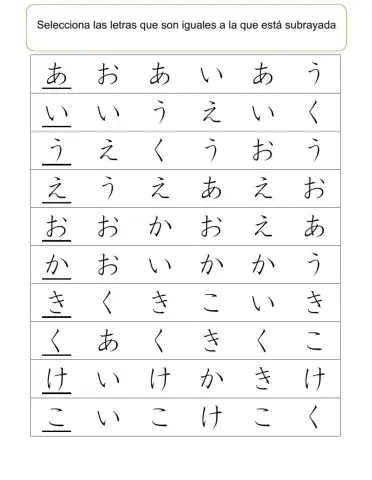 Selecciona las letras que son iguales a la que está subrayada
あ お あ い あ う
い い う え い く
う え く う お う
え う え あ え お
お お か お え あ
か お い か か う
き く き こ い き
く あ く き く こ
け い け か き け
こ い こ け こ く